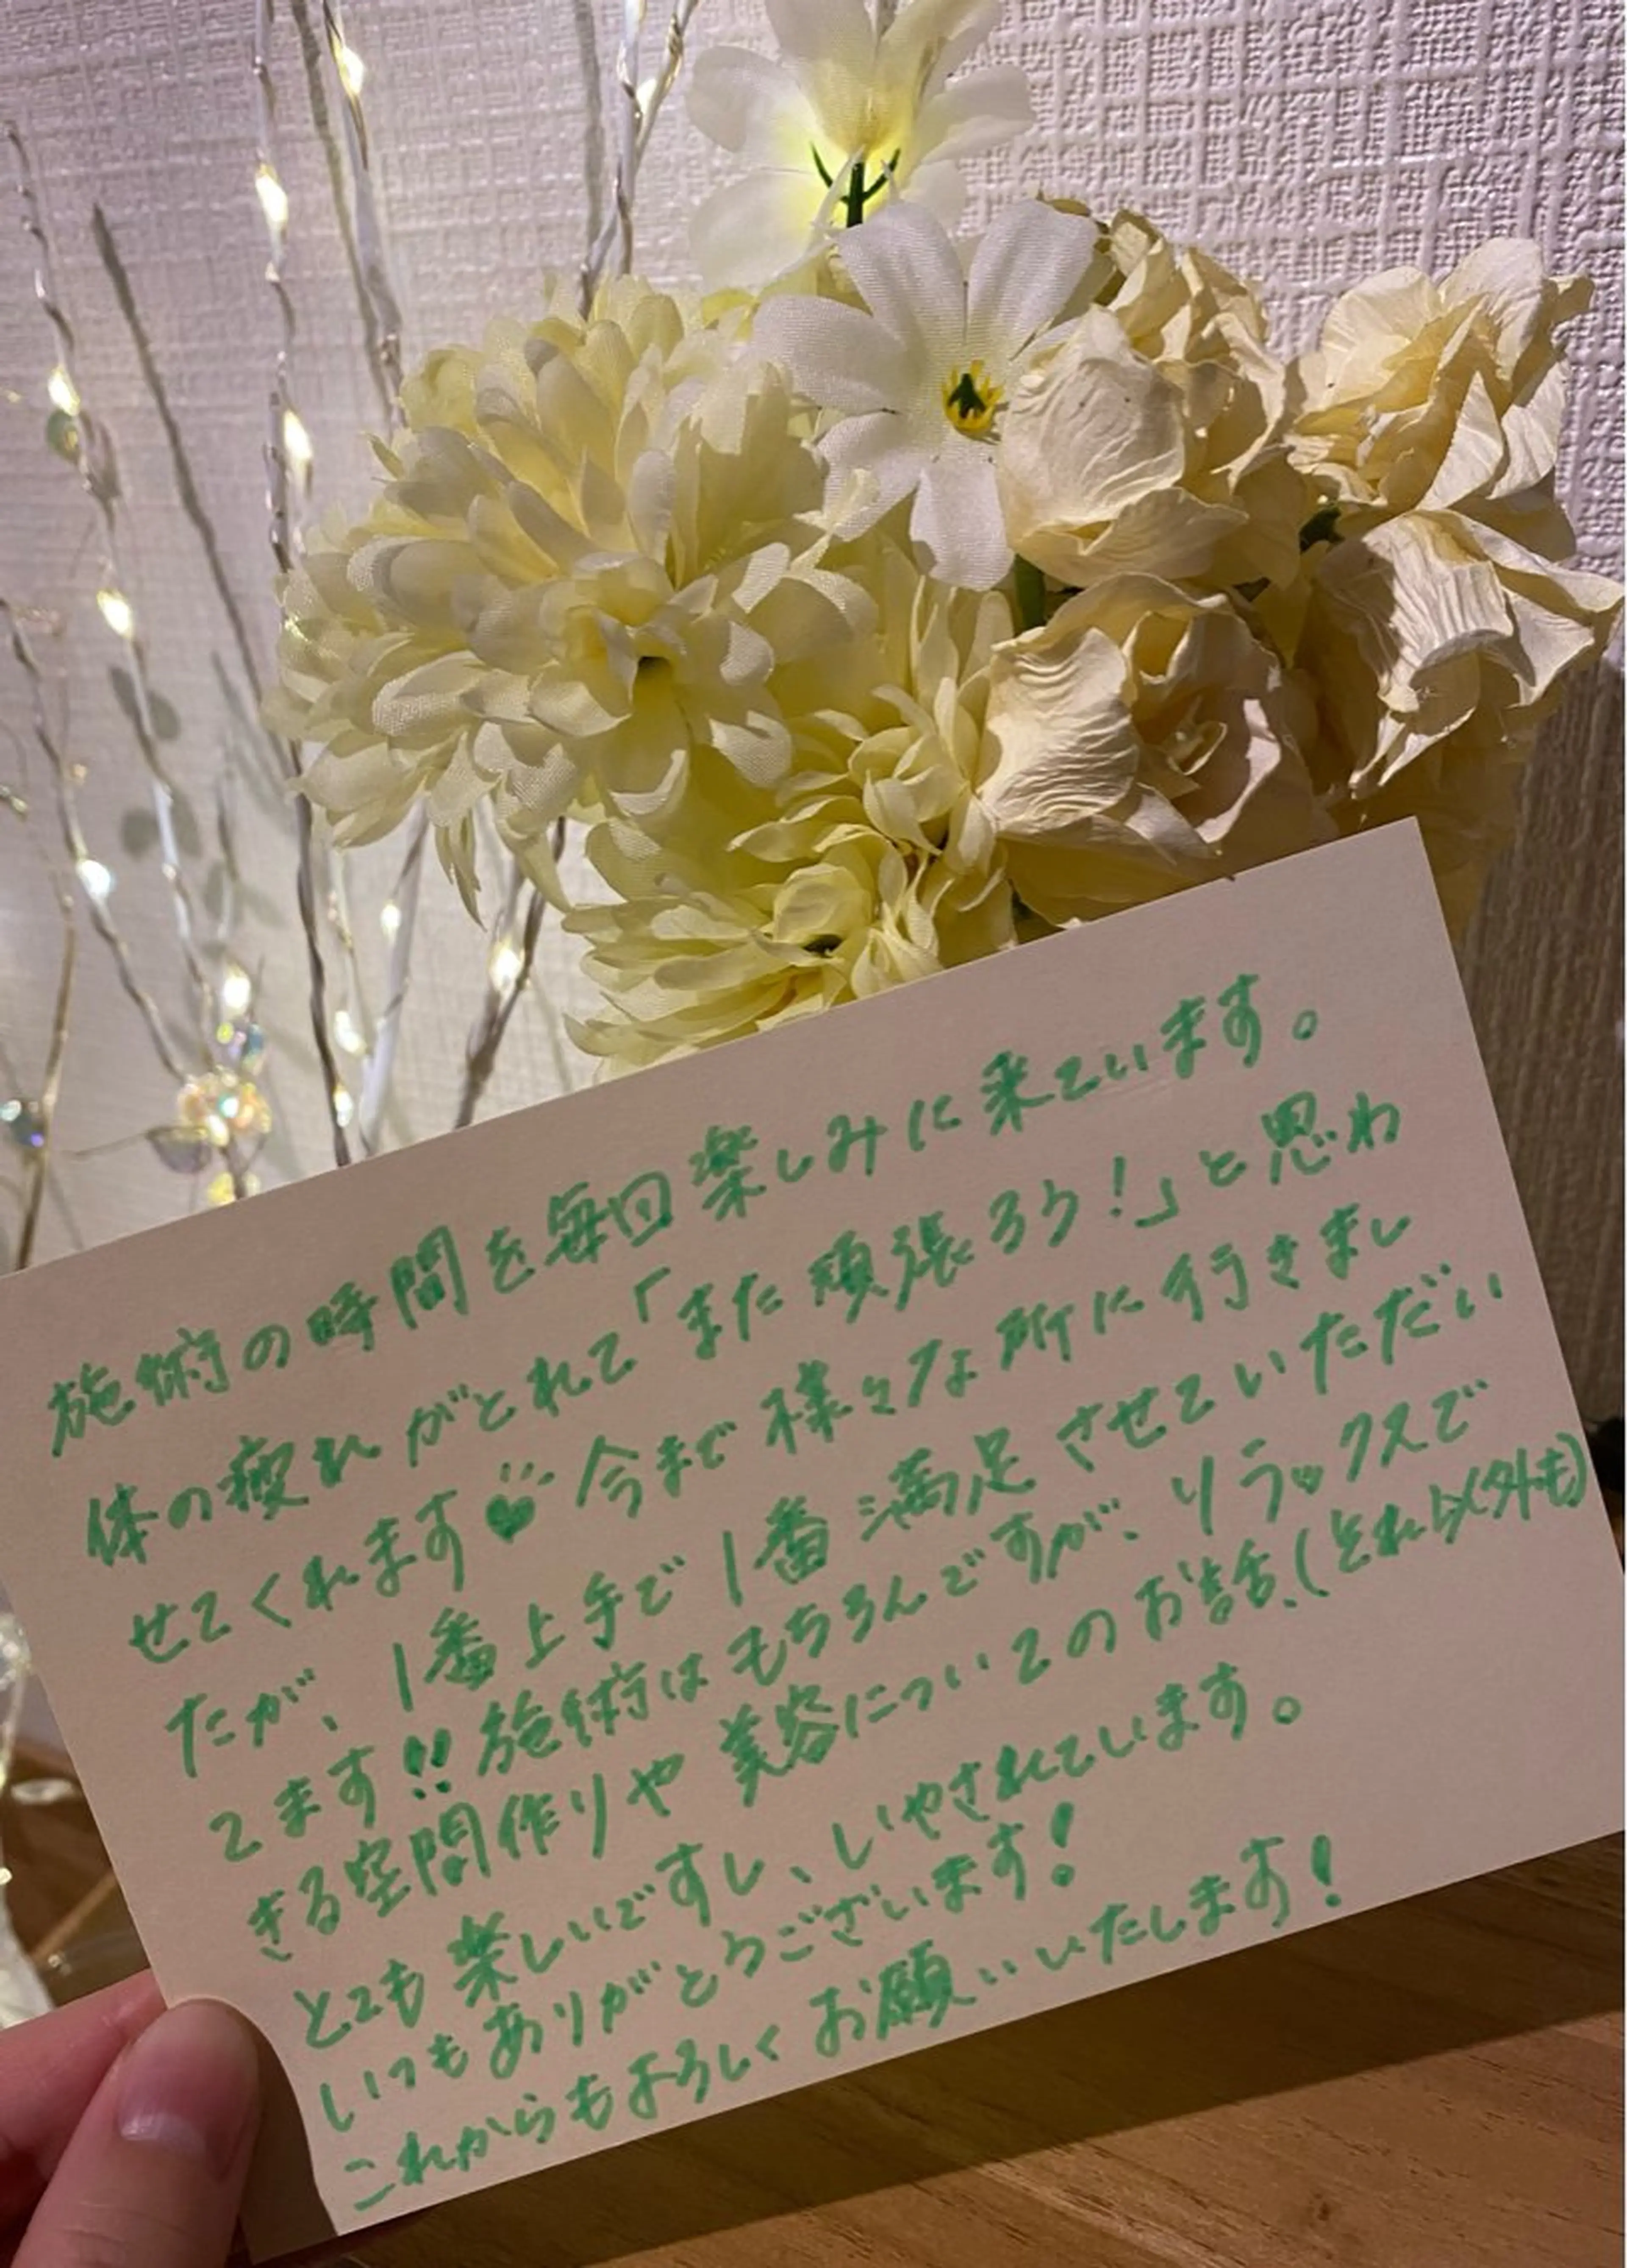 施術の時間を毎回楽しみに来ています。
体の疲れがとれて「また頑張ろう!」と思わ
せてくれます♥今まで様々な所に行きまし
たが、1番上手で1番満足させていただい
てます!!施術はもちろんですが、リラックスで
きる空間作りや美容についてのお話、(それ以外も)
とても楽しいですし、いやされています。
いつもありがとうございます!
これからもよろしくお願いいたします!